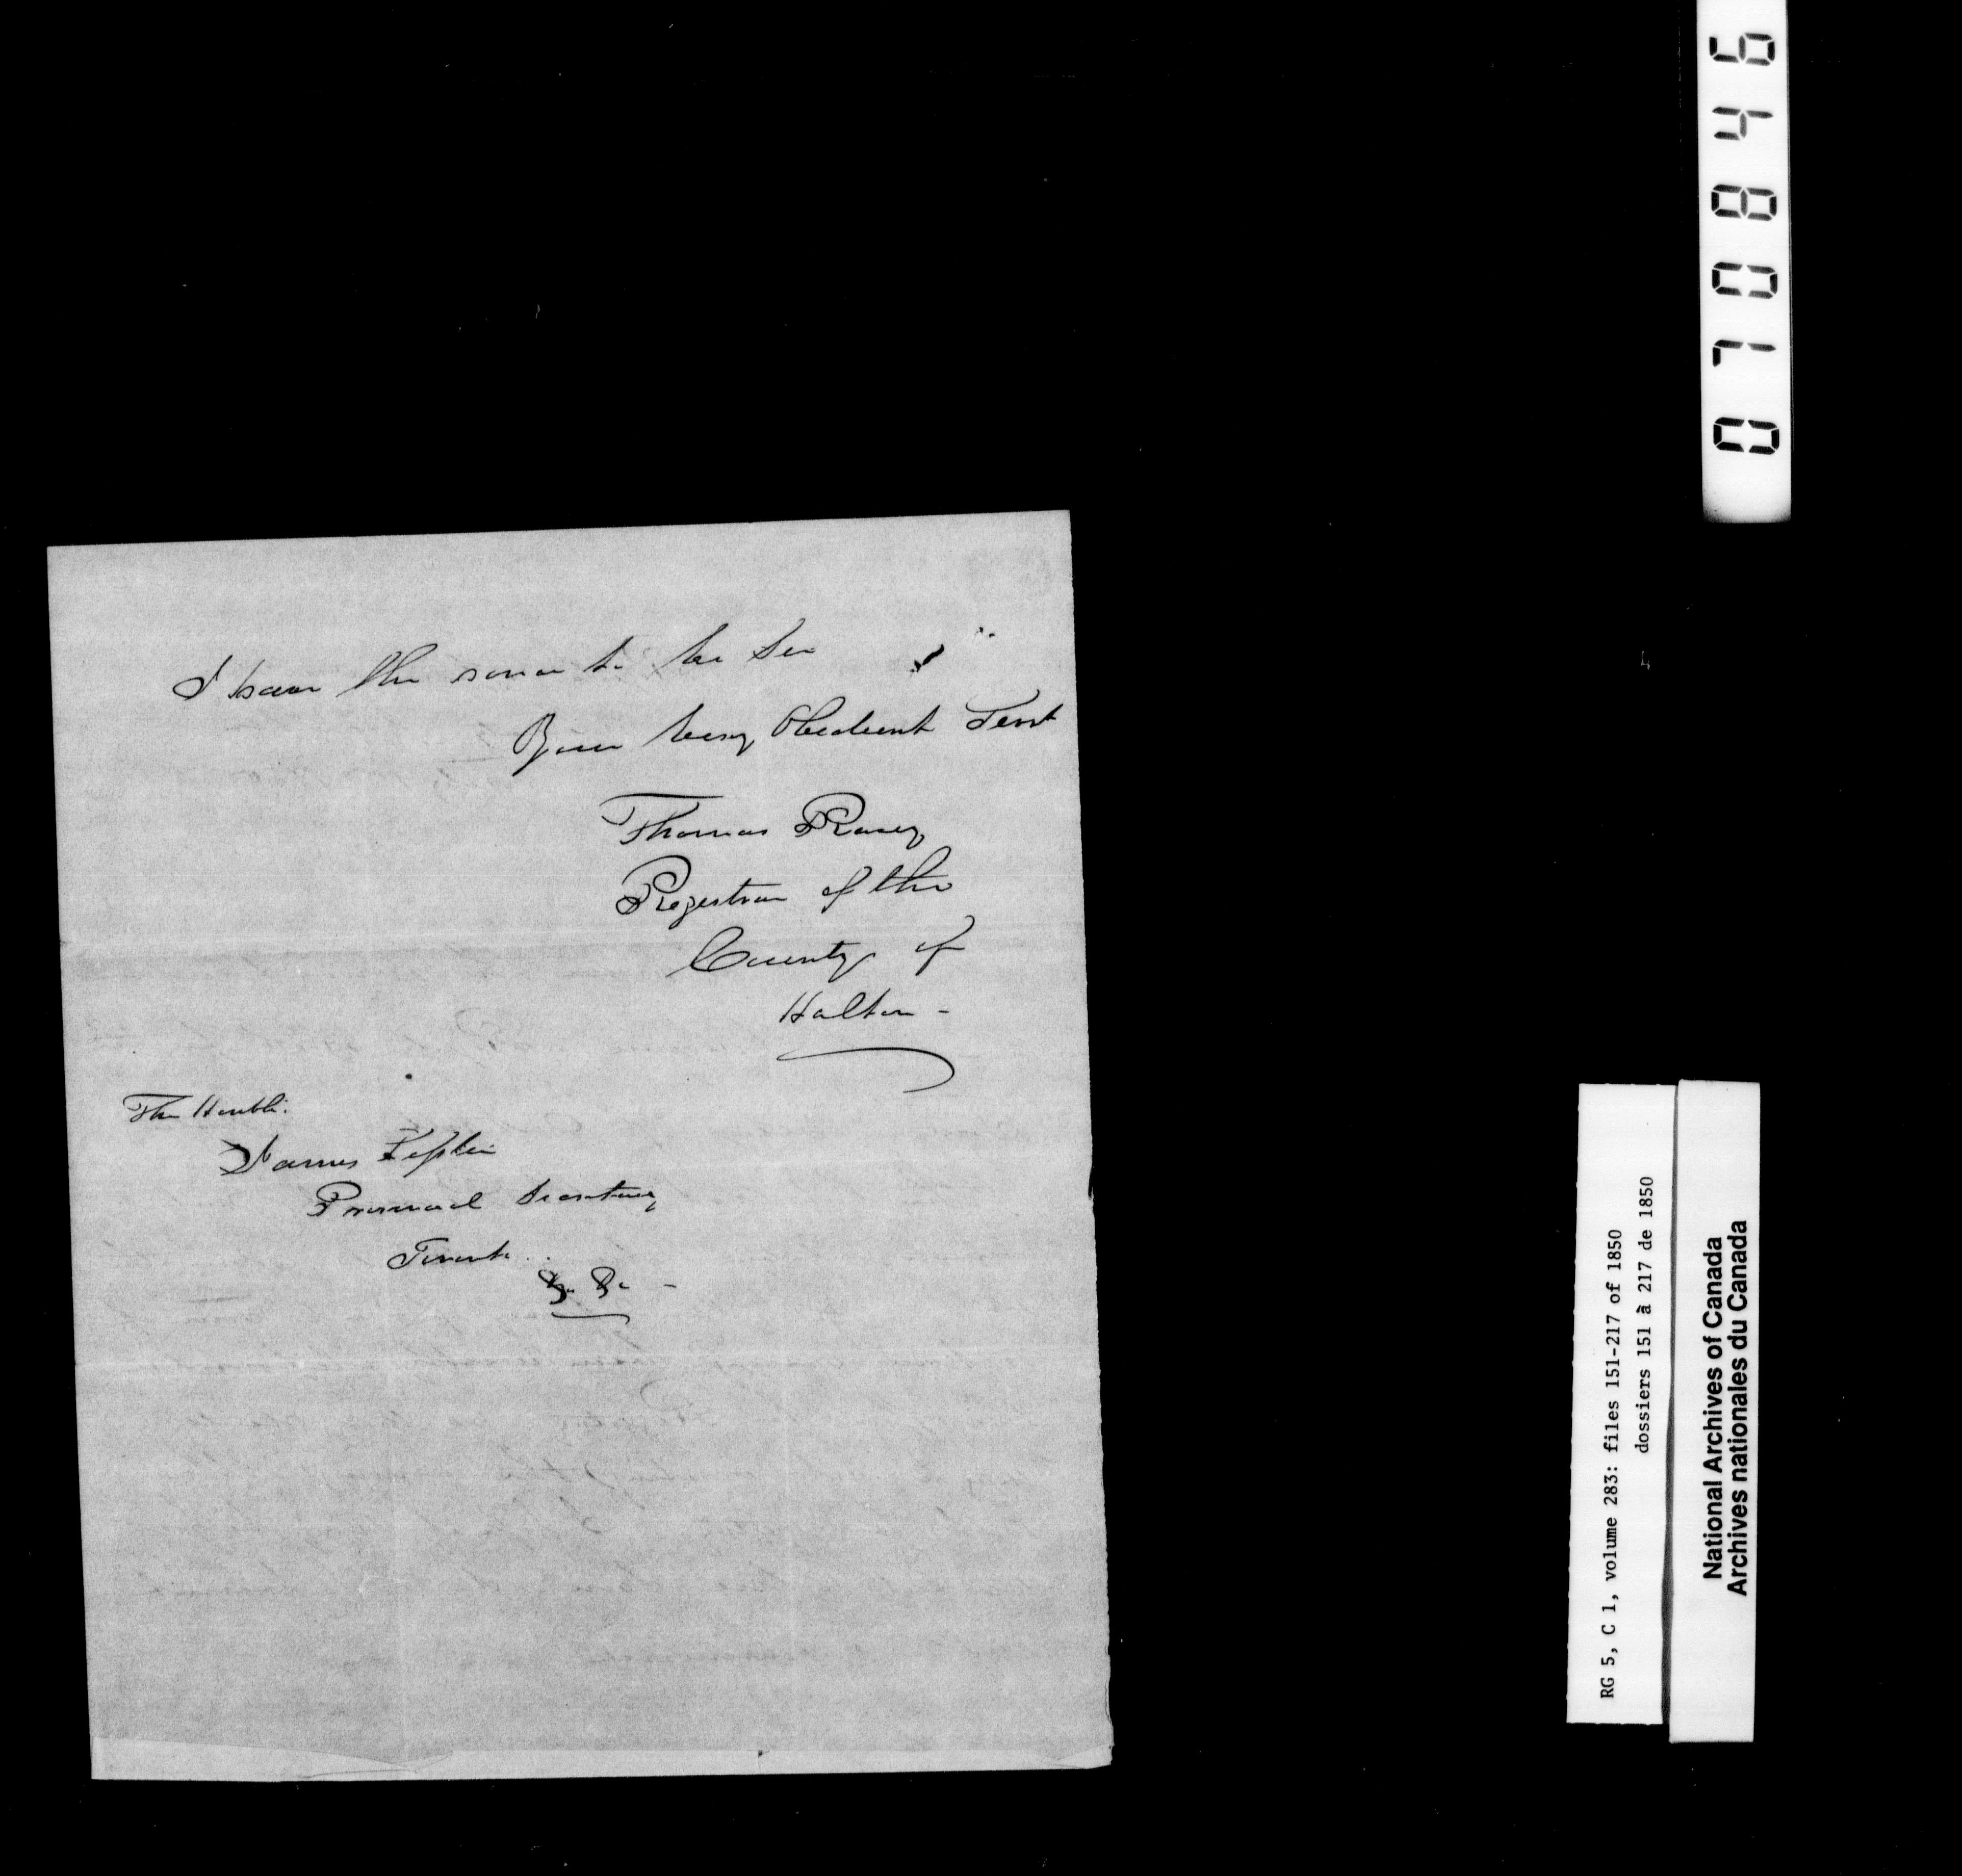 I have the honor to be Sir
Your very Obedient Servt
Thomas Racey
Registrar of the
County of
Halton -
The Honble.
James Leslie
Provincial Secretary
Toronto
&c &c -
070846
RG 5, C 1, volume 283: files 151-217 of 1850
dossiers 151 à 217 de 1850
National Archives of Canada
Archives nationales du Canada